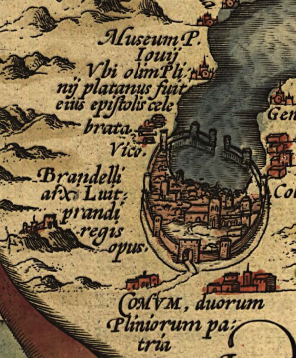 Museum P.
Iouij
Vbi olim Pli
nij platanus fuit
eius epistolis cele
brata.
Vico.
Gen
Brandelli
arx Luit,
prandi
regis
opus.
Co
COMVM, duorum
Pliniorum pa,
tria